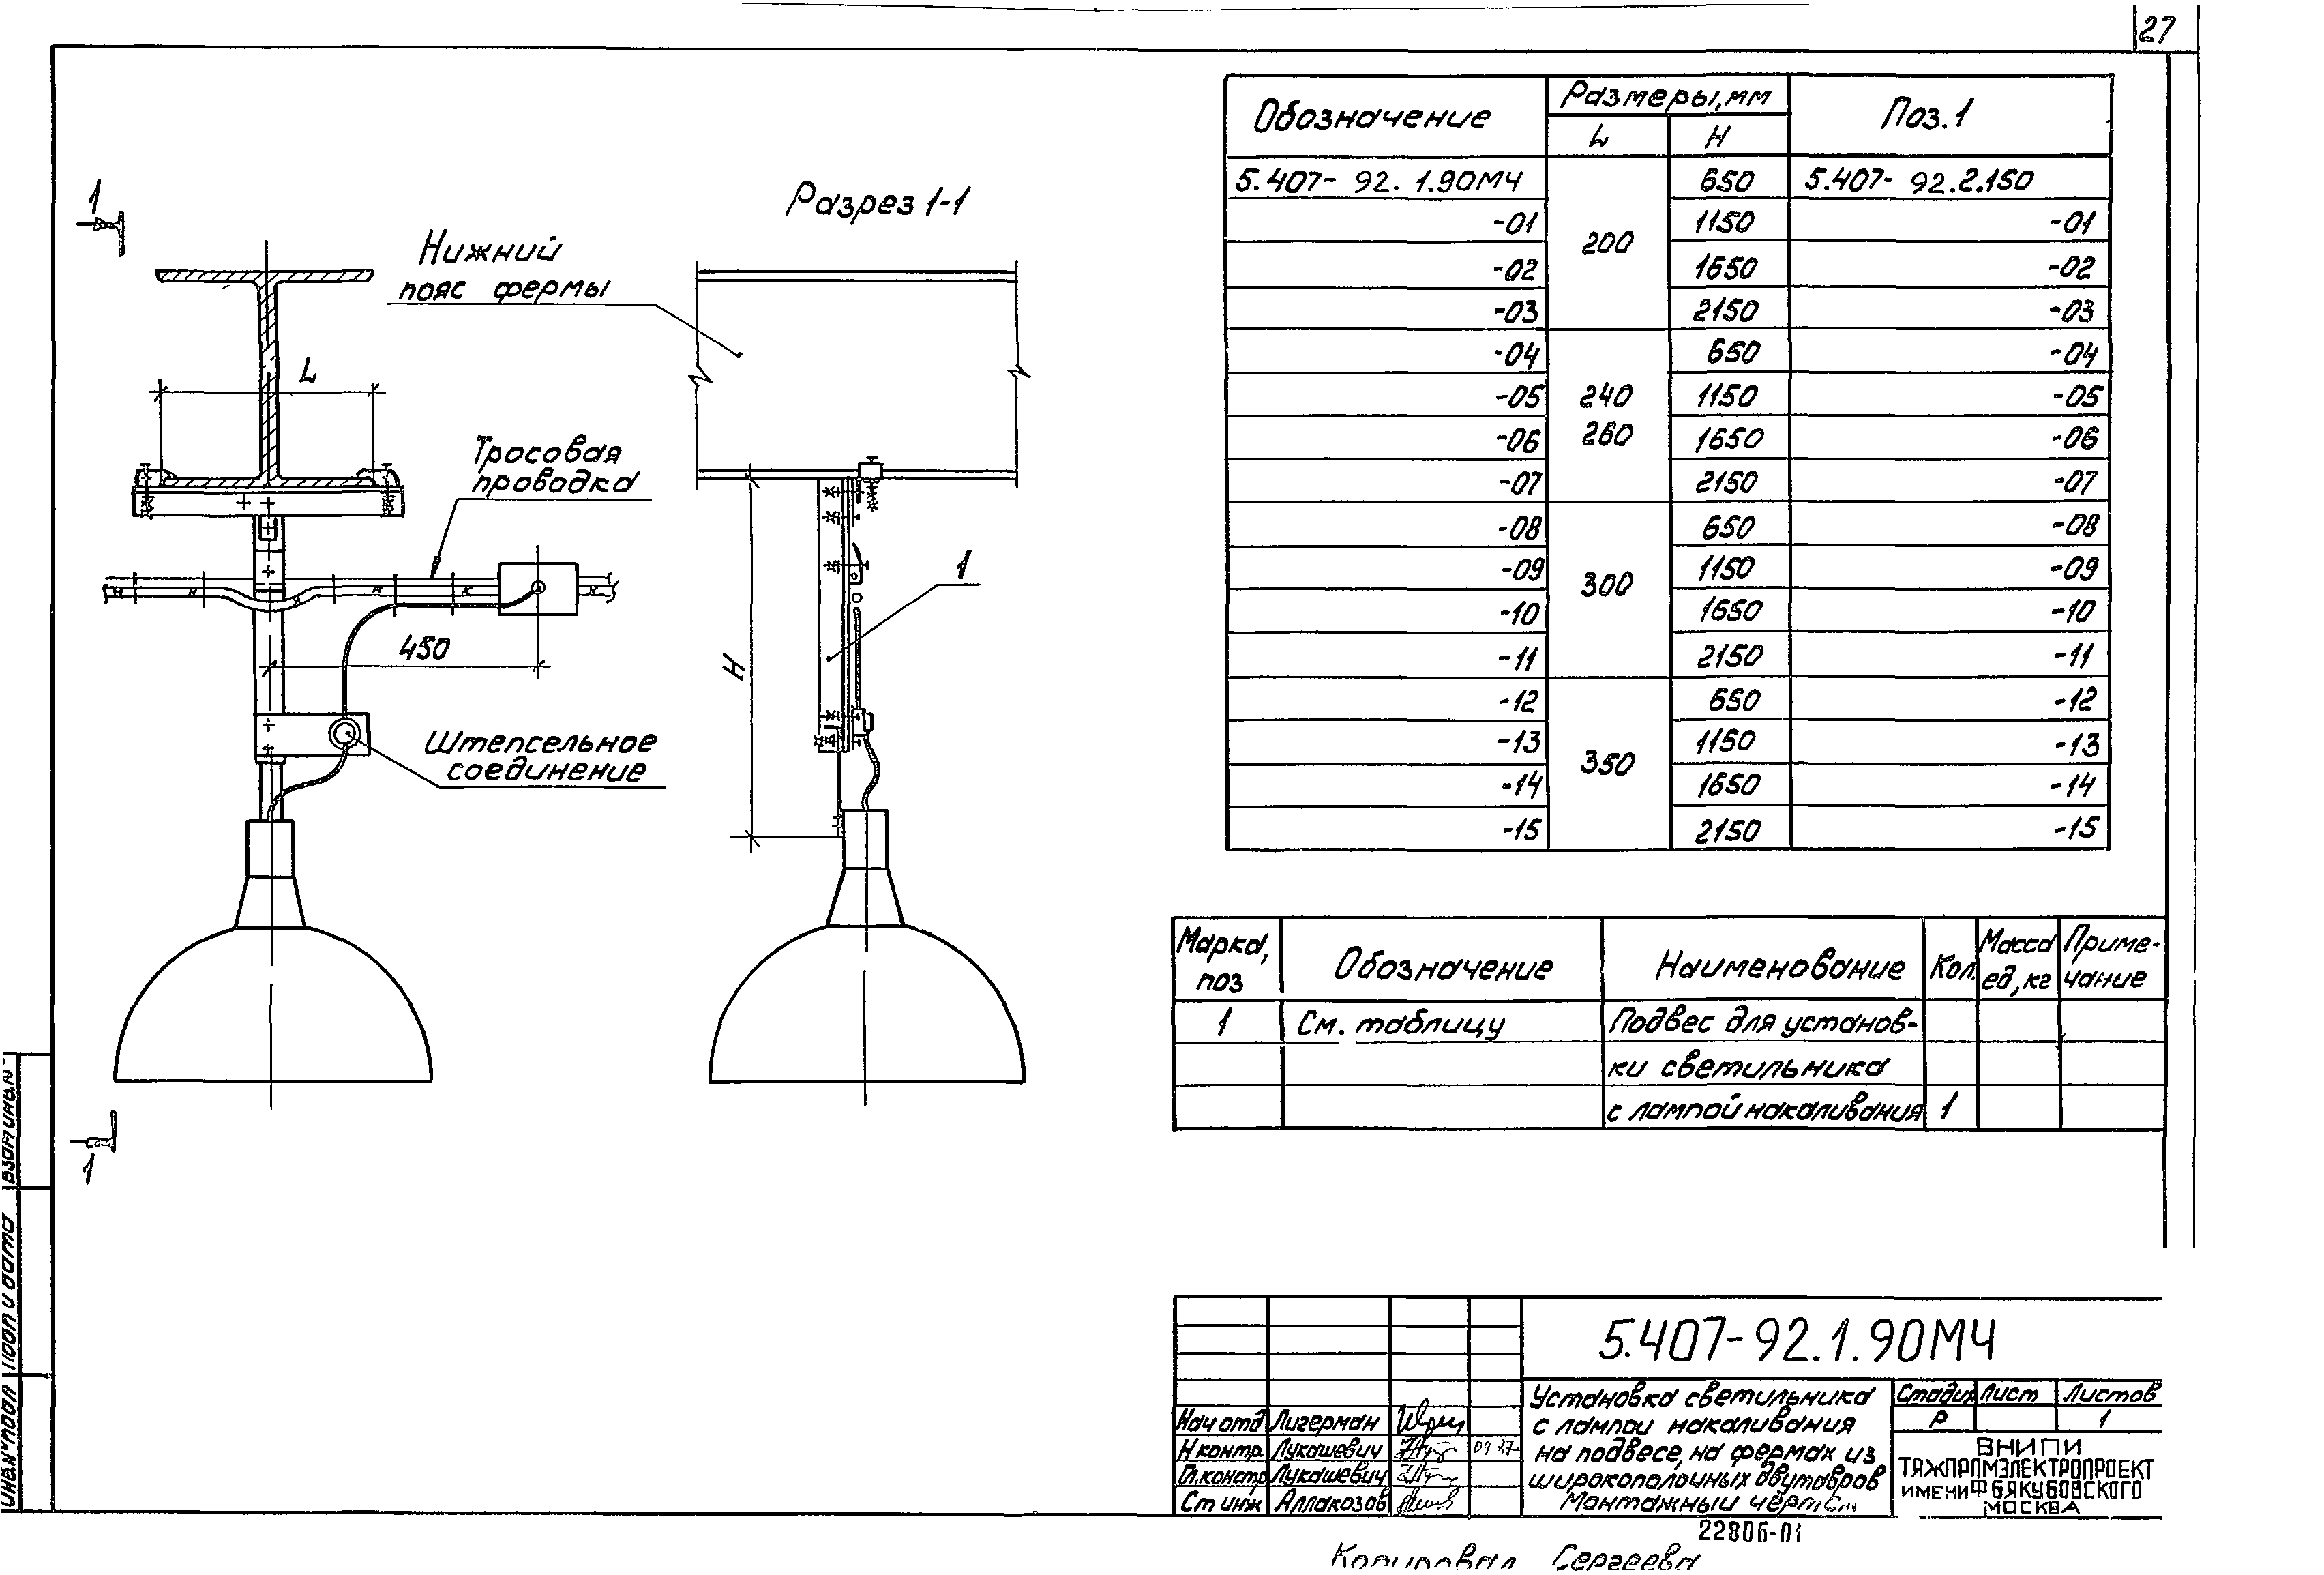 27
1
Разрез 1-1
Нижний
пояс фермы
L
Тросовая
проводка
1
450
H
Штепсельное
соединение
1
Обозначение Размеры, мм Поз. 1
L H
5.407- 92. 1.90МЧ 200 650 5.407- 92.2.150
-01 1150 -01
-02 1650 -02
-03 2150 -03
-04 240 260 650 -04
-05 1150 -05
-06 1650 -06
-07 2150 -07
-08 300 650 -08
-09 1150 -09
-10 1650 -10
-11 2150 -11
-12 350 650 -12
-13 1150 -13
-14 1650 -14
-15 2150 -15
Марка, поз Обозначение Наименование Кол. Масса ед, кг Приме- чание
1 См. таблицу Подвес для установ-
ки светильника
с лампой накаливания 1
5.407-92.1.90МЧ
Установка светильника
с лампой накаливания
на подвесе, на фермах из
широкополочных двутавров
Монтажный
Стадия Лист Листов
Р 1
ВНИПИ
ТЯЖПРОМЭЛЕКТРОПРОЕКТ
ИМЕНИ Ф Б ЯКУБОВСКОГО
МОСКВА
Нач отд Лигерман
Н контр. Лукашевич
Гл. констр Лукашевич
Ст инж Аллакозов
22806-01
Копировал Сергеева
Инв. № подл
Подп и дата
Взам инв.